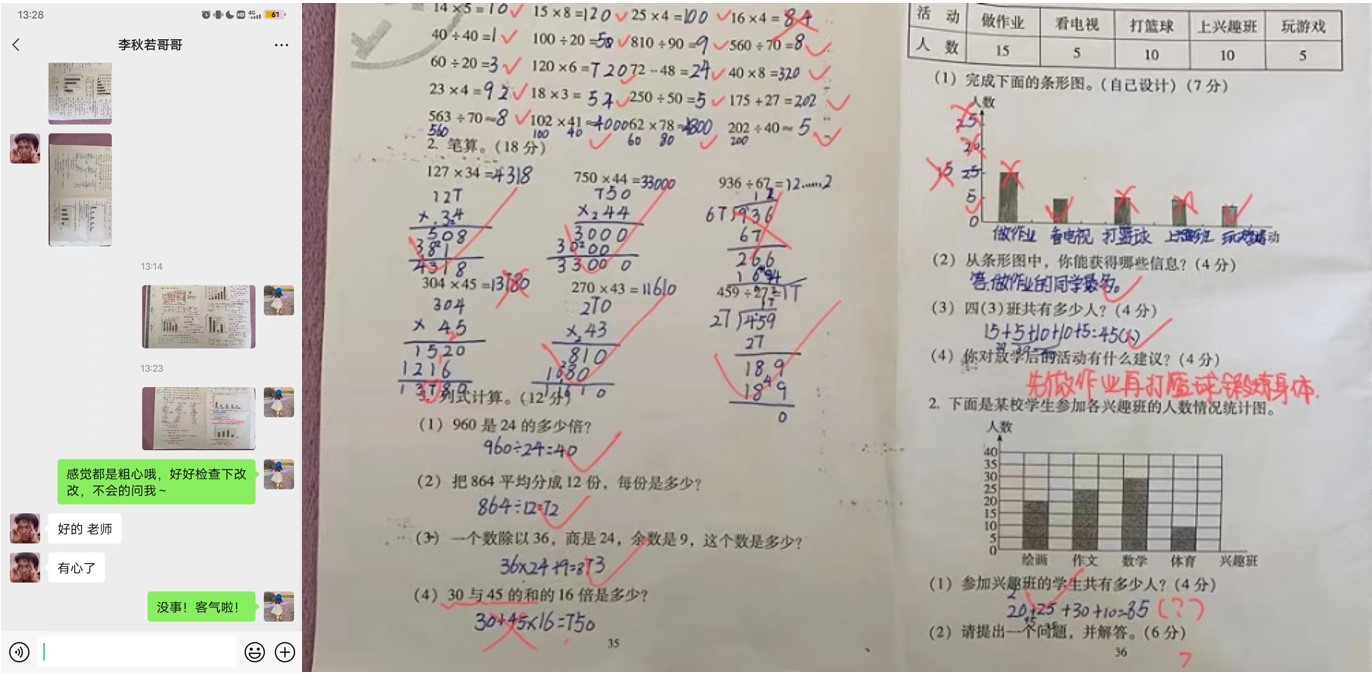 13:28
4G
61
李秋若哥哥
13:14
13:23
感觉都是粗心哦，好好检查下改
改，不会的问我~
好的 老师
有心了
没事！客气啦！
14×5=10 15×8=120 25×4=100 16×4=84
40÷40=1 100÷20=50 810÷90=9 560÷70=8
60÷20=3 120×6=720 72-48=24 40×8=320
23×4=92 18×3=54 250÷50=5 175+27=202
563÷70≈8 102×41≈4000 62×78≈4800 202÷40≈5
560 100 40 60 80 200
2. 笔算。(18分)
127×34=4318 750×44=33000 936÷67=12……2
127 750 12
×34 ×44 67 936
508 3000 67
381 3000 266
4318 33000
304×45=13780 270×43=11610 459÷27=17
304 270 17
×45 ×43 27 459
1520 810 27
1216 1080 189
13780 11610 189
0
列式计算。(12分)
(1) 960是24的多少倍？
960÷24=40
(2) 把864平均分成12份，每份是多少？
864÷12=72
(3) 一个数除以36，商是24，余数是9，这个数是多少？
36×24+9=873
(4) 30与45的和的16倍是多少？
30+45×16=750
35
活动 做作业 看电视 打篮球 上兴趣班 玩游戏
人数 15 5 10 10 5
(1) 完成下面的条形图。(自己设计)(7分)
人数
25
20
15 25
5
0
做作业 看电视 打篮球 上兴趣班 玩游戏 活动
(2) 从条形图中，你能获得哪些信息？(4分)
答:做作业的同学最多。
(3) 四(3)班共有多少人？(4分)
15+5+10+10+5=45(人)
(4) 你对放学后的活动有什么建议？(4分)
先做作业再打篮球锻炼身体.
2. 下面是某校学生参加各兴趣班的人数情况统计图。
人数
40
35
30
25
20
15
10
5
0
绘画 作文 数学 体育 兴趣班
(1) 参加兴趣班的学生共有多少人？(4分)
20+25+30+10=85(??)
(2) 请提出一个问题，并解答。(6分)
36
?